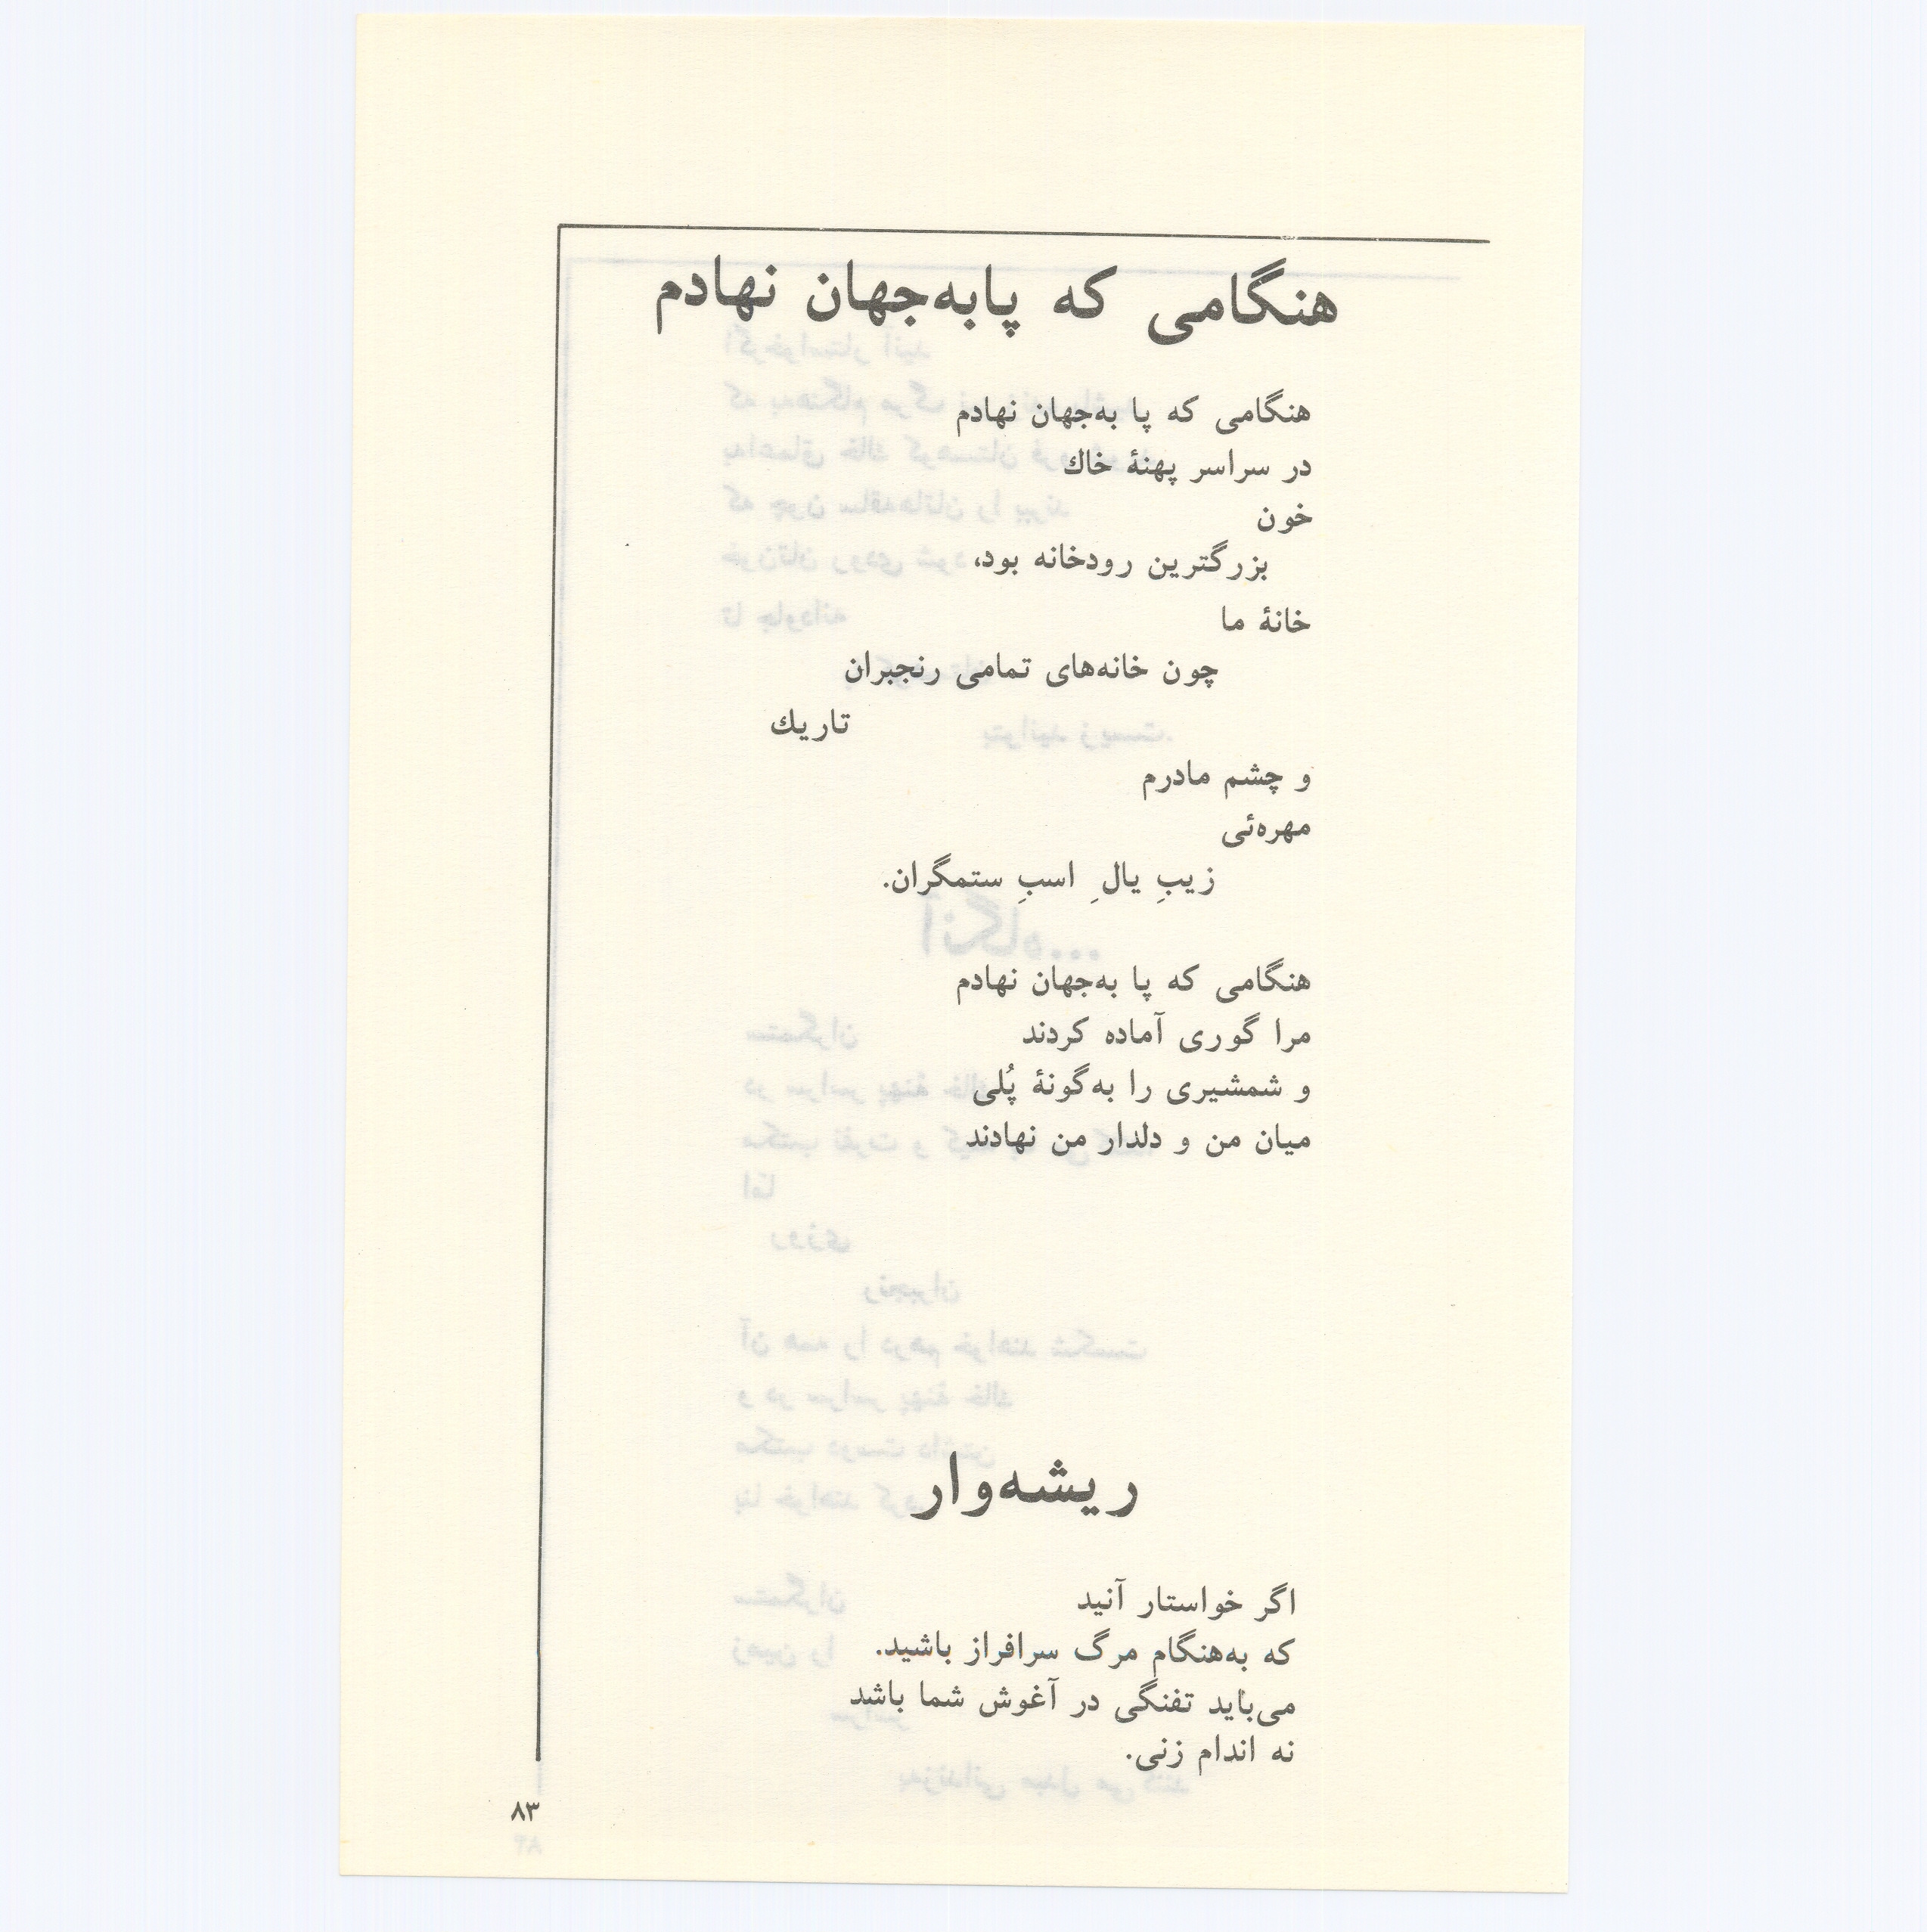 هنگامی که پابه‌جهان نهادم
هنگامی که پا به‌جهان نهادم
در سراسر پهنهٔ خاك
خون
بزرگترین رودخانه بود،
خانهٔ ما
چون خانه‌های تمامی رنجبران
تاریك
و چشم مادرم
مهره‌ئی
زیبِ یالِ اسبِ ستمگران.
هنگامی که پا به‌جهان نهادم
مرا گوری آماده کردند
و شمشیری را به‌گونهٔ پُلی
میان من و دلدار من نهادند
ریشه‌وار
اگر خواستار آنید
که به‌هنگام مرگ سرافراز باشید.
می‌باید تفنگی در آغوش شما باشد
نه اندام زنی.
۸۳